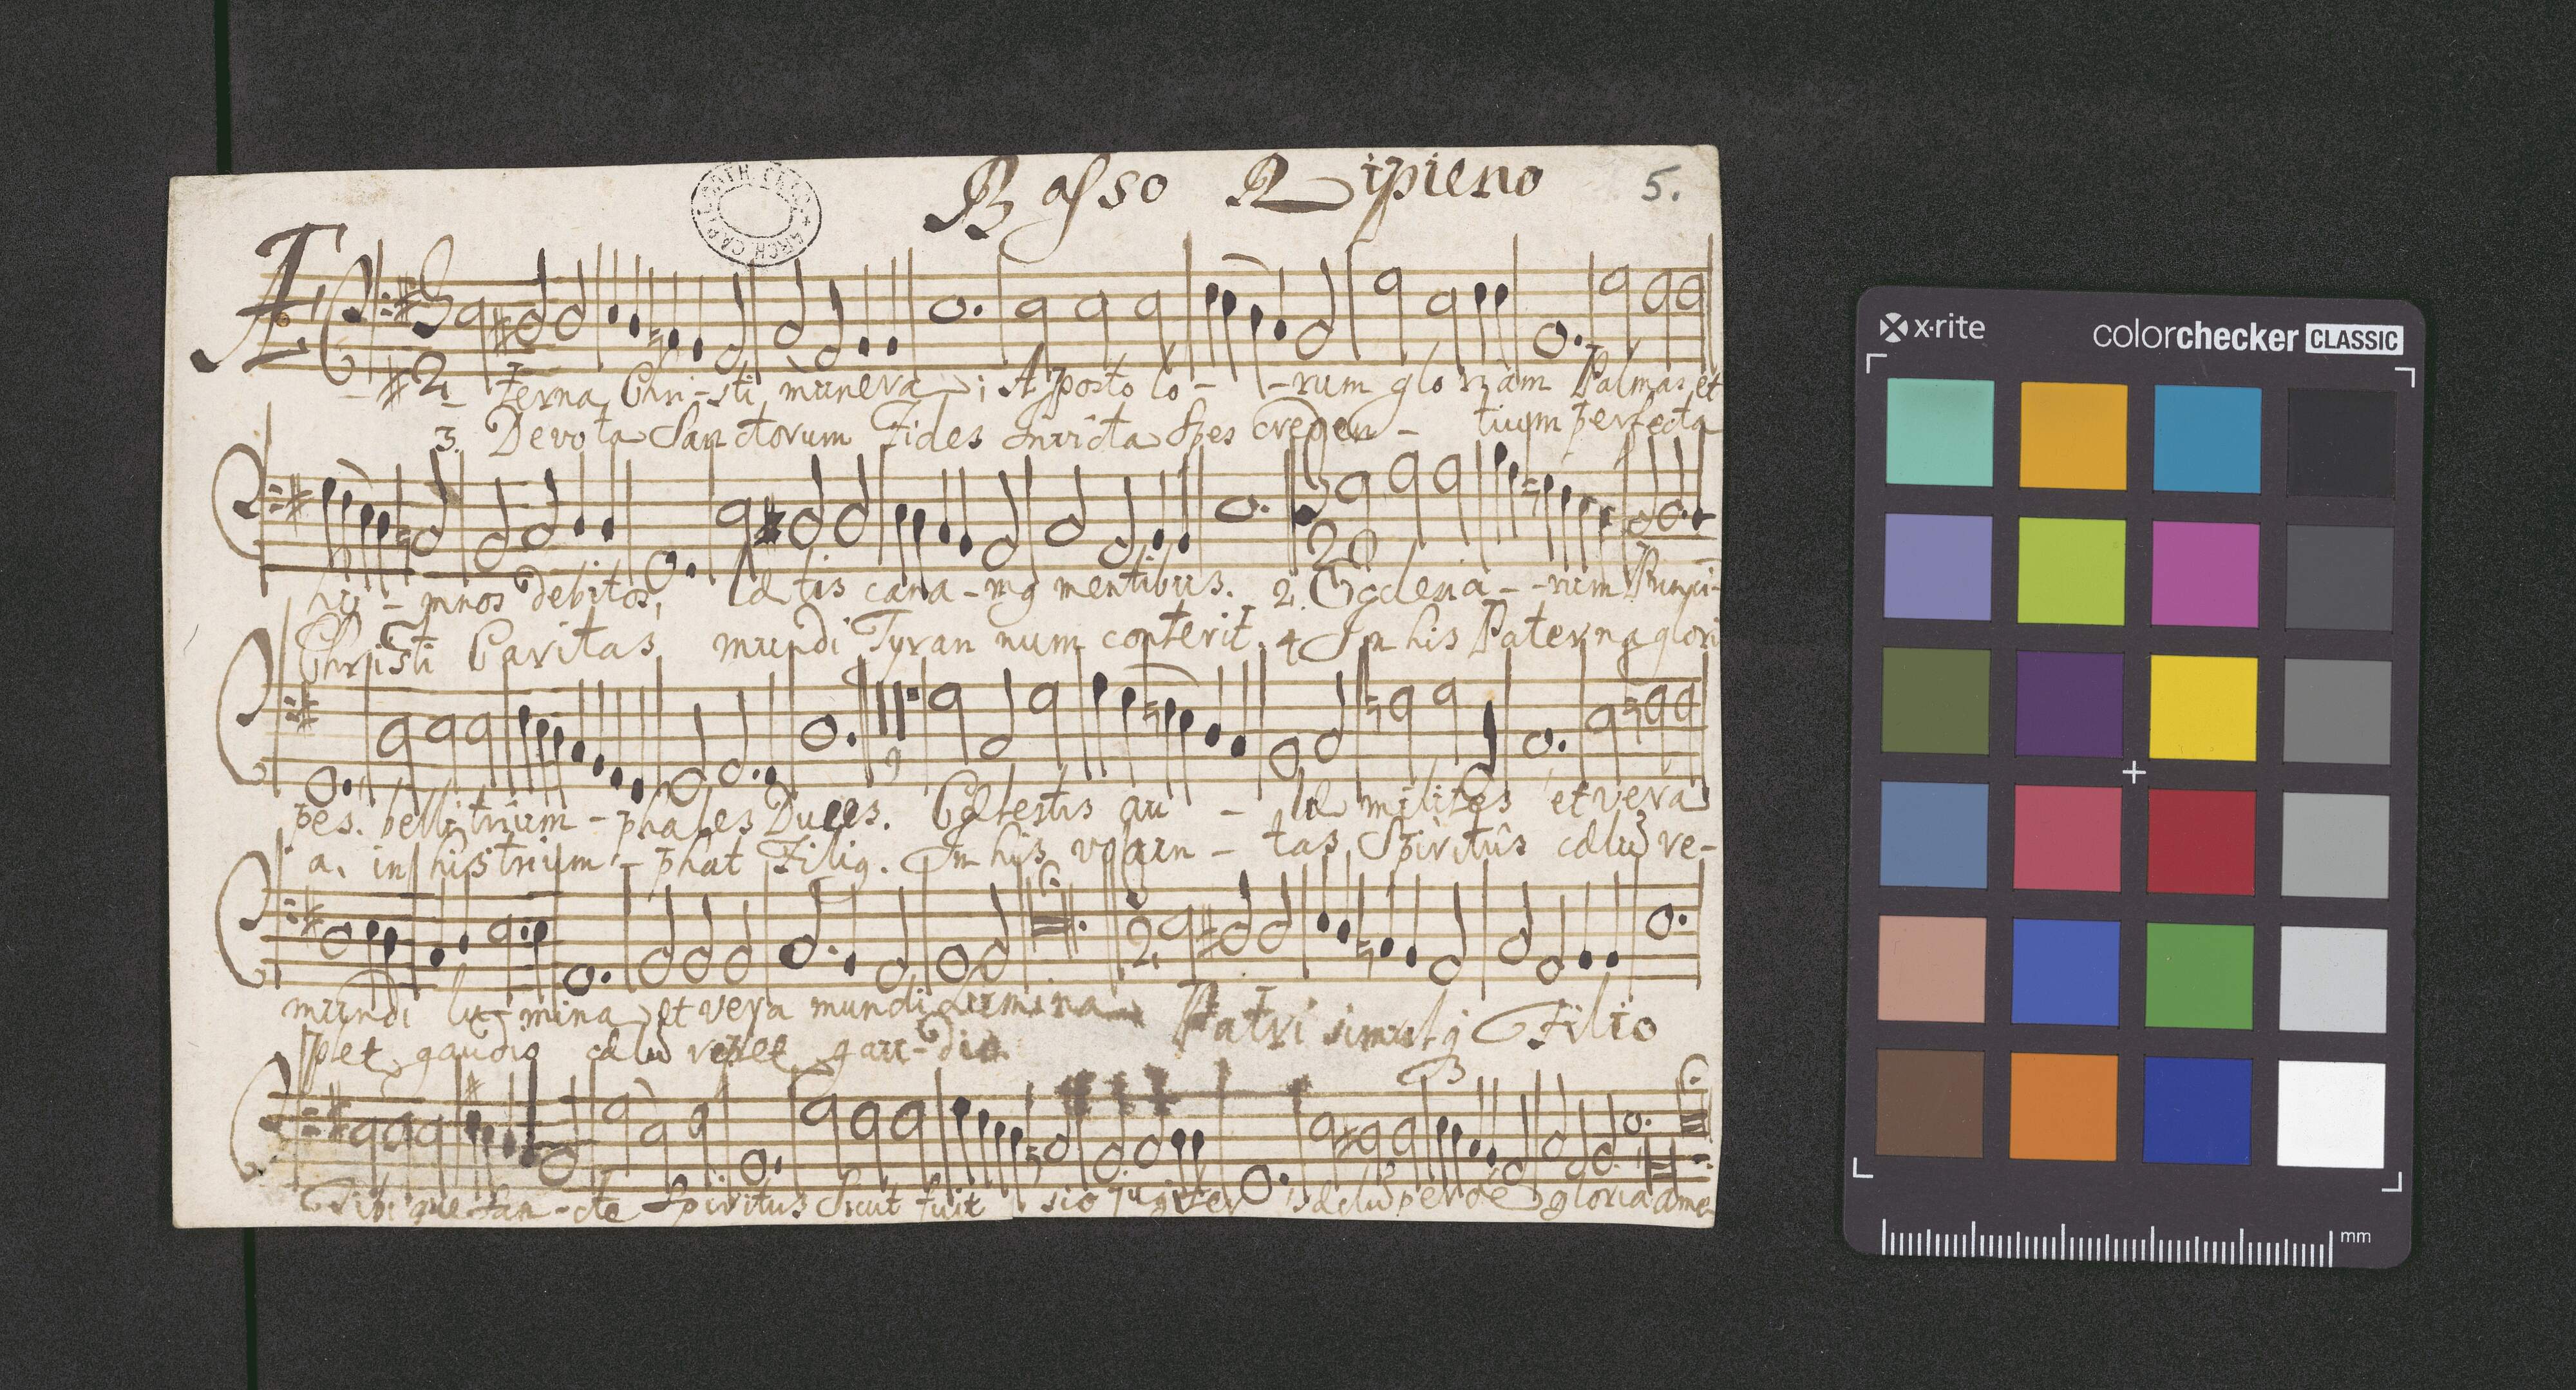 Basso Ripieno 5.
Æterna Chri-sti munera; Apostolo- -rum gloriam Palmas et
3. Devota Sanctorum Fides Invicta Spes creden- tium perfecta
hy-mnos debitos, lætis cana-mq mentibus. 2. Ecclesia- -rum Princi-
Christi Caritas mundi Tyrannum conterit. 4 In his Paterna glori
pes. belli trium-phales Duces. Cælestis au - læ milites et vera
a. in his trium-phat Filiq. In his volun-tas Spiritus cælū re-
mundi lu-mina et vera mundi Lumina Patri simulq Filio
plet gaudio cælū replet gau-dio.
Tibique San-cte Spiritus Sicut fuit sit jugiter sæclū per oē gloria ame
x-rite
colorchecker CLASSIC
mm